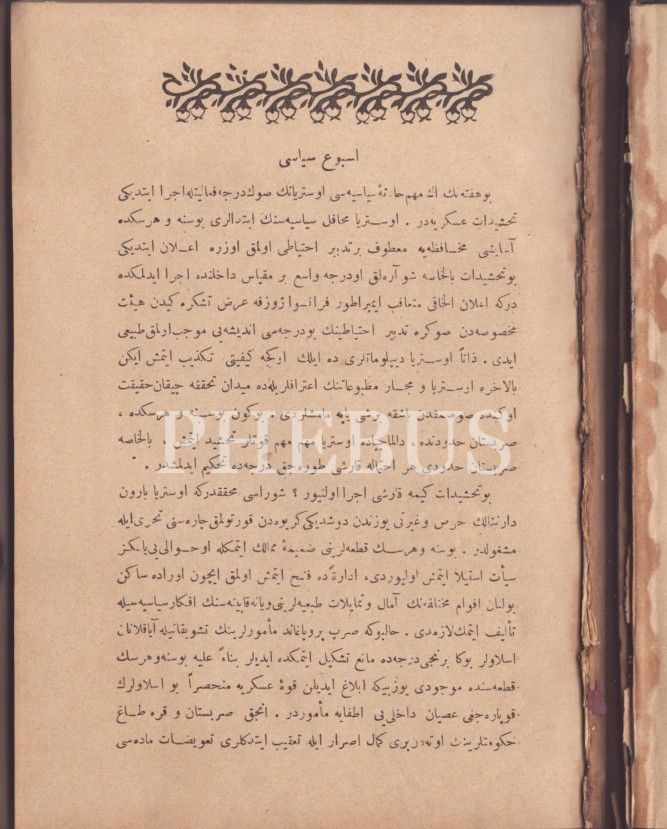 اسبوع سیاسی
بو هفته‌نك اڭ مهم حادثهٔ سیاسیه‌سی اوستریانك صوك درجه فعالیتله اجرا ایتدیکی
تحشیدات عسکریه‌در . اوستریا محافل سیاسیه‌سنك ابتدالری بوسنه و هرسکده
آسایشی محافظه‌یه معطوف بر تدبیر احتیاطی اولمق اوزره اعلان ایتدیکی
بو تحشیدات بالخاصه شو آرەلق اودرجه واسع بر مقیاس داخلنده اجرا ایدلمکده
درکه اعلان الحاقی متعاقب ایمپراطور فرانسوا ژوزفه عرض تشکره کیدن هیأت
مخصوصه‌دن صوکره تدبیر احتیاطینك بودرجه‌سی اندیشه‌یی موجب اولمق طبیعی
ایدی . ذاتاً اوستریا دیپلوماتلری ده ایلك اوکجه کیفیتی تکذیب ایتمش ایکن
بالاخره اوستریا و مجار مطبوعاتنك اعترافلریله‌ده میدان تحققه چیقان حقیقت
اوکنده صوصمقدن باشقه برشی یاپه مامشلردی . بوکون بوسنه و هرسکده ،
صربستان حدودنده ، دالماچیاده اوستریا مهم مهم قوتلر تحشید ایتمش ، بالخاصه
صربستان حدودی هر احتماله قارشی طوره‌جق درجه‌ده تحکیم ایدلمشدر .
بو تحشیدات کیمه قارشی اجرا اولنیور ؟ شوراسی محققدرکه اوستریا بارون
دارنتالك حرص و غیرتی یوزندن دوشدیکی کریوه‌دن قورتولمق چاره‌سنی تحری ایله
مشغولدر . بوسنه و هرسك قطعه‌لرینی ضمیمهٔ ممالك ایتمکله او حوالی‌یی یالکز
سیأت استیلا ایتمش اولیوردی، ادارةً ده فتح ایتمش اولمق ایچون اوراده ساکن
بولنان اقوام مختلفه‌نك آمال و تمایلات طبیعیه‌لرینی ویانه قابینه‌سنك افکار سیاسیه‌سیله
تألیف ایتمك لازمدی . حالبوکه صرب پروپاغاند مأمورلرینك تشویقاتیله آیاقلانان
اسلاولر بوکا برنجی درجه‌ده مانع تشکیل ایتمکده ایدیلر بناءً علیه بوسنه و هرسك
قطعه‌سنده موجودی یوزبیکه ابلاغ ایدیلن قوهٔ عسکریه منحصراً بو اسلاولرك
قوپاره‌جغی عصیان داخلی‌یی اطفایه مأموردر . انجق صربستان و قره طاغ
حکومتلرینك اوته‌دنبری کمال اصرار ایله تعقیب ایتدکلری تعویضات ماده‌سی
PHEBUS